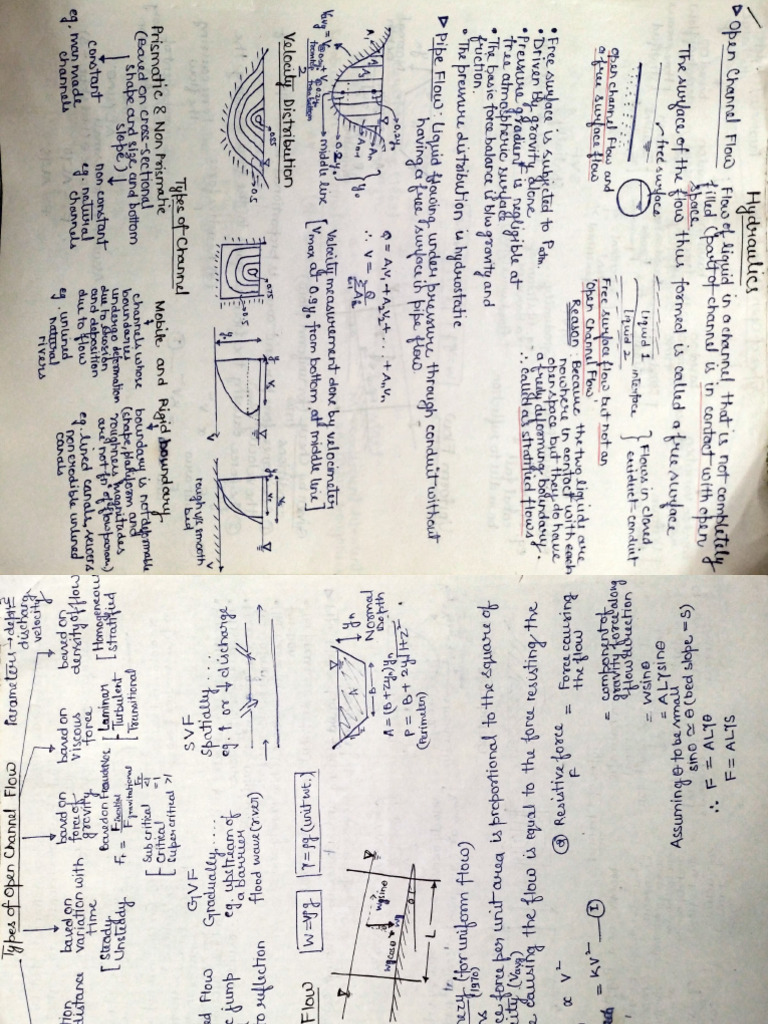 Hydraulics
▷ Open Channel Flow Flow of liquid in a channel that is not completely
filled (part of channel is in contact with open
space
The surface of the flow thus formed is called a free surface
free surface
open channel flow and
a free surface flow
liquid 1
interface
liquid 2
Flows in closed
conduit
Free surface flow but not an
open channel flow
Reason: Because the two liquids are
nowhere in contact with each
open space but they do have
a freely deforming boundary.
∴ called as stratified flows
• Free surface is subjected to Patm.
• Driven by gravity alone
• Pressure gradient is negligible at
free atmospheric surface
• The basic force balance is b/w gravity and
friction.
• The pressure distribution is hydrostatic
▷ Pipe Flow: Liquid flowing under pressure through conduit without
having a free surface in pipe flow
Q = A₁V₁ + A₂V₂ + ... + AnVn
middle line
Velocity measurement done by velocimeter
[Vmax at 0.9y₀ from bottom at middle line]
Velocity Distribution
0.5
0.5
rough v/s smooth
bed
Types of Channel
Prismatic & Non Prismatic
(Based on cross-sectional
shape and size, and bottom
slope)
constant
eg. man made
channels
non constant
eg. natural
channels
Mobile and Rigid boundary
channels whose
boundaries
undergo deformation
due to erosion
and deposition
due to flow
eg. unlined
natural
rivers
boundary is not deformable
(shape, planform and
roughness magnitudes
are not fn of flow param)
eg. lined canals, sewers
non erodible unlined
canals
Types of Open Channel Flow
Parameters → depth
discharge
velocity
distance
based on
variation with
time
[Steady
Unsteady
based on
force of
gravity
Based on Froude No.
Fr = Finertial / Fgravitational
Sub critical <1
Critical =1
Super critical >1
based on
viscous
force
[Laminar
Turbulent
Transitional
based on
density of flow
[Homogeneous
stratified
GVF
Gradually....
eg. upstream of
a barrier
flood wave (river)
SVF
Spatially....
eg. ↑ or ↓ discharge
jump
to reflection
Flow
W = Vρg
γ = ρg (unit wt.)
L
wsinθ
wcosθ
B
yn
Normal
Depth
A = (B+zyn)yn
P = B + 2y√1+z²
(Perimeter)
(for uniform flow)
force per unit area is proportional to the square of
(Vavg)
causing the flow is equal to the force resisting the
∝ V²
= KV² — ①
② Resistive force = Force causing
F the flow
= component of
gravity force along
flow direction
= Wsinθ
= ALγsinθ
Assuming θ to be small
sinθ ≈ θ (bed slope = S)
∴ F = ALγθ
F = ALγS